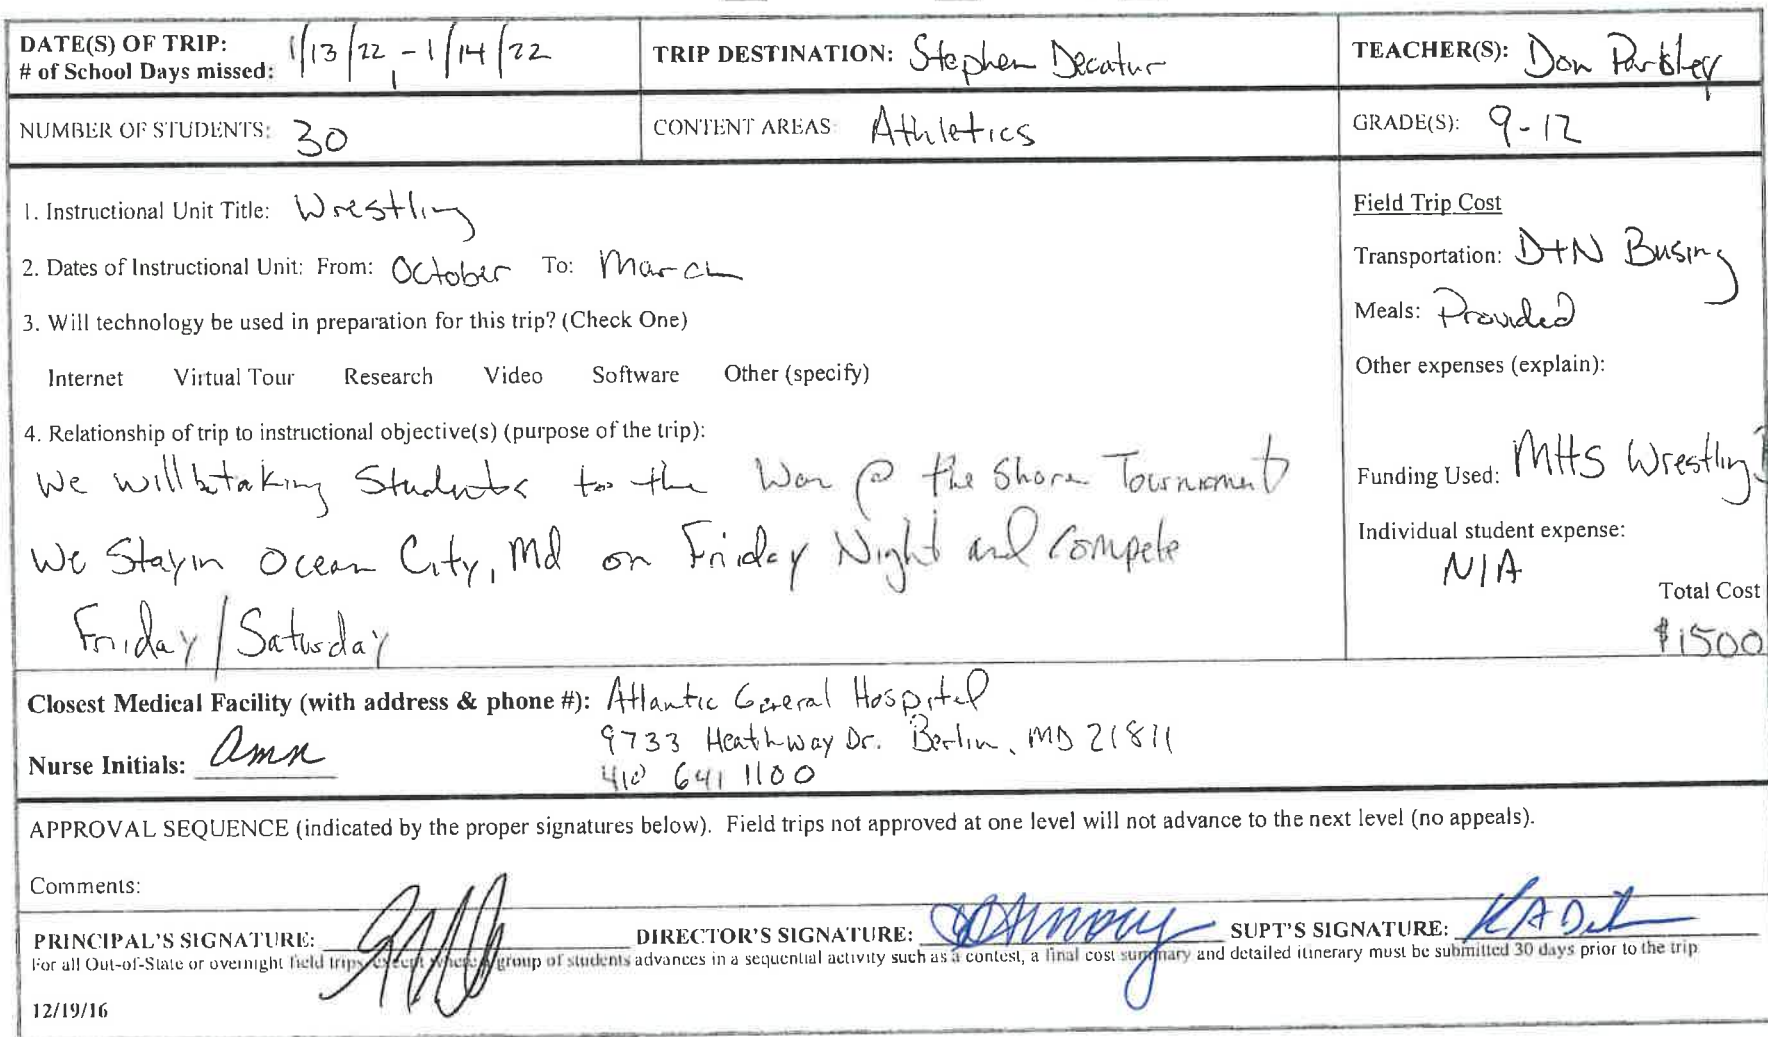 DATE(S) OF TRIP: 1/13/22 - 1/14/22
# of School Days missed: 1
TRIP DESTINATION: Stephen Decatur
TEACHER(S): Don
NUMBER OF STUDENTS: 30
CONTENT AREAS: Athletics
GRADE(S): 9-12
1. Instructional Unit Title: Wrestling
2. Dates of Instructional Unit: From: October To: March
3. Will technology be used in preparation for this trip? (Check One)
Internet Virtual Tour Research Video Software Other (specify)
4. Relationship of trip to instructional objective(s) (purpose of the trip):
We will be taking Students to the War @ the Shore Tournament
We Stay in Ocean City, Md on Friday Night and Compete
Friday/Saturday
Field Trip Cost
Transportation: D+N Busing
Meals: Provided
Other expenses (explain):
Funding Used: MHS Wrestling
Individual student expense:
N/A
Total Cost
$1500
Closest Medical Facility (with address & phone #): Atlantic General Hospital
9733 Heathway Dr. Berlin, MD 21811
410 641 1100
Nurse Initials: amn
APPROVAL SEQUENCE (indicated by the proper signatures below). Field trips not approved at one level will not advance to the next level (no appeals).
Comments:
PRINCIPAL'S SIGNATURE: DIRECTOR'S SIGNATURE: SUPT'S SIGNATURE:
For all Out-of-State or overnight field trips, except where a group of students advances in a sequential activity such as a contest, a final cost summary and detailed itinerary must be submitted 30 days prior to the trip
12/19/16